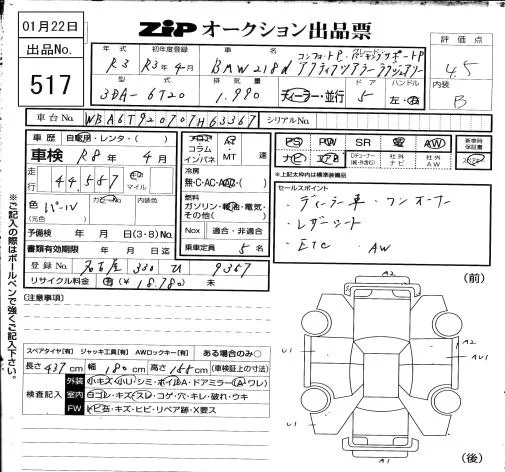 01月22日
ZIP オークション出品票
出品No.
517
年式
初年度登録
車名
グレード
評価点
R3
R3年4月
BMW218d
コンフォートP、パーキングサポートP
アクティブツアラーラグジュアリー
4.5
型式
排気量
ドア
ハンドル
3DA-6T20
1,990
ディーラー・並行
5
左・右
内装
B
車台No.
WBA6T920707H63367
シリアルNo.
車歴
自家用・レンタ・( )
車検
R8年 4月
走行
44,587
km
マイル
色
(元色)
パール
カラーNo.
予備検 年 月 日(3・8)No.
書類有効期限 年 月 日迄
登録No.
名古屋 330 ひ 9367
リサイクル料金
有(¥18,780) 未
フロア
コラム
インパネ
AT
MT
速
冷房
無・C・AC・AAC・( )
燃料
ガソリン・軽油・電気・
その他( )
Nox
適合・非適合
乗車定員
5名
PS
PW
SR
革
AW
ナビ
エアB
Dチューナー
社外ナビ
社外AW
新車時
保証書
※上記太枠内は標準装備品
セールスポイント
・ディーラー車・ワンオーナー
・レザーシート
・ETC ・AW
(注意事項)
スペアタイヤ[有]
ジャッキ工具[有]
AWロックキー[有]
ある場合のみ○
長さ437cm
幅180cm
高さ155cm
(車検証上の寸法)
検査記入
外装
小キズ・小U・シミ・ホイルA・ドアミラー(A・ワレ)
室内
白コゲ・キズ・スレ・コゲ・穴・キレ・破れ・ウキ
FW
トビ石・キズ・ヒビ・リペア跡・X要ス
※ご記入の際はボールペンで強くご記入下さい。
(前)
A2
U1
A2
AU1
U1
A2
(後)